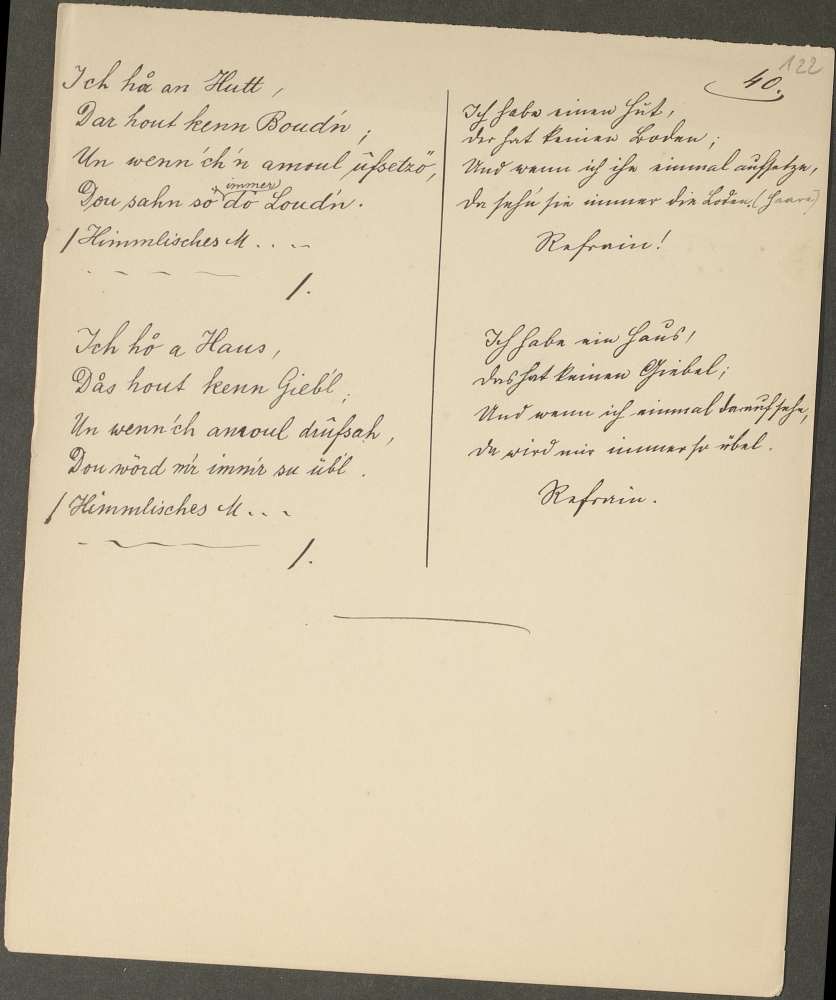 122
40.
Ich hå an Hutt,
Dar hout kenn Boud'n;
Un wenn'ch'n amoul ûfsetzö,
immer
Dou sahn sö dö Loud'n.
/ Himmlisches M....
/.
Ich hå a Haus,
Dås hout kenn Gieb'l,
Un wenn'ch amoul drûfsah,
Dou wörd m'r imm'r su üb'l.
/ Himmlisches M...
/.
Ich habe einen Hut,
der hat keinen Boden;
Und wenn ich ihn einmal aufsetze,
da sehn sie immer die Loden. (Haare)
Refrain!
Ich habe ein Haus,
das hat keinen Giebel;
Und wenn ich einmal daraufsehe,
da wird mir immer so übel.
Refrain.